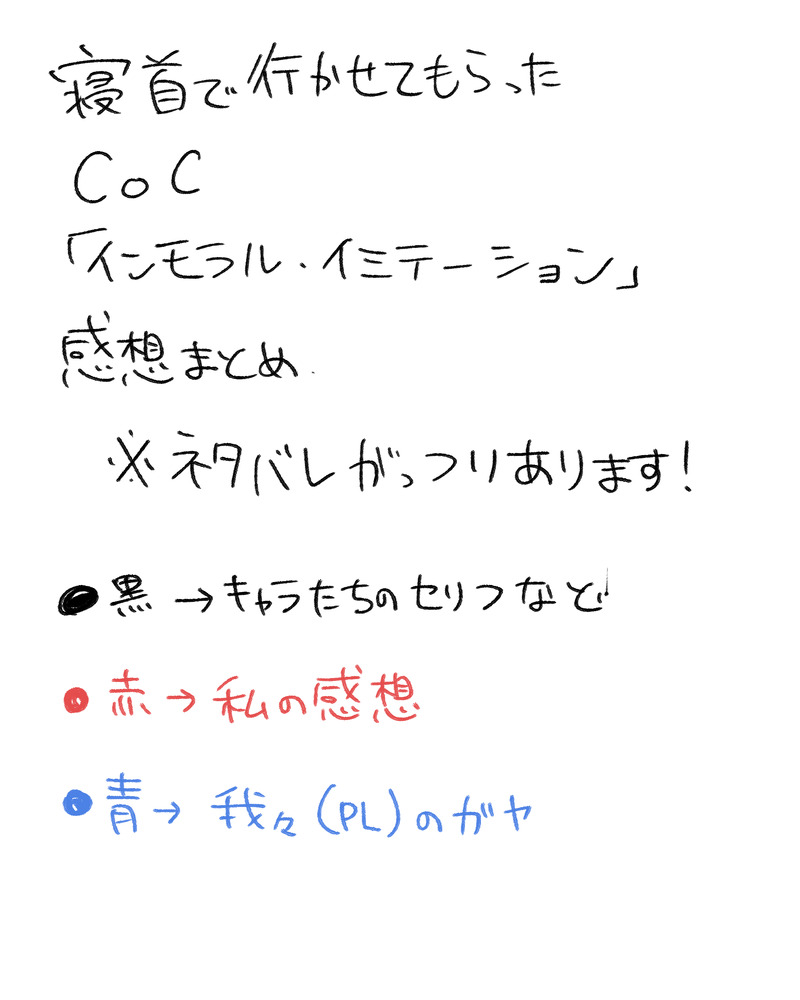 寝首で行かせてもらった
CoC
「インモラル・イミテーション」
感想まとめ
※ネタバレがっつりあります!
●黒→キャラたちのセリフなど
●赤→私の感想
●青→我々(PL)のガヤ